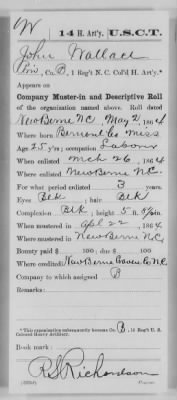 W | 14 H. Art'y. | U.S.C.T.
John Wallace
Priv., Co. B, 1 Reg't N. C. Col'd H. Art'y.*
Appears on
Company Muster-in and Descriptive Roll
of the organization named above. Roll dated
New Berne N.C., May 2, 1864
Where born Miss
Age 25 y'rs; occupation Labor
When enlisted Mch 26, 1864
Where enlisted New Berne N.C.
For what period enlisted 3 years.
Eyes Blk; hair Blk
Complexion Blk; height 5 ft. in.
When mustered in Apl 22, 1864
Where mustered in New Berne N.C.
Bounty paid $ 100; due $ 100
Where credited New Berne Craven Co NC
Company to which assigned B
Remarks:
*This organization subsequently became Co. B, 14 Reg't U. S.
Colored Heavy Artillery.
Book mark:
R S Richardson
Copyist.